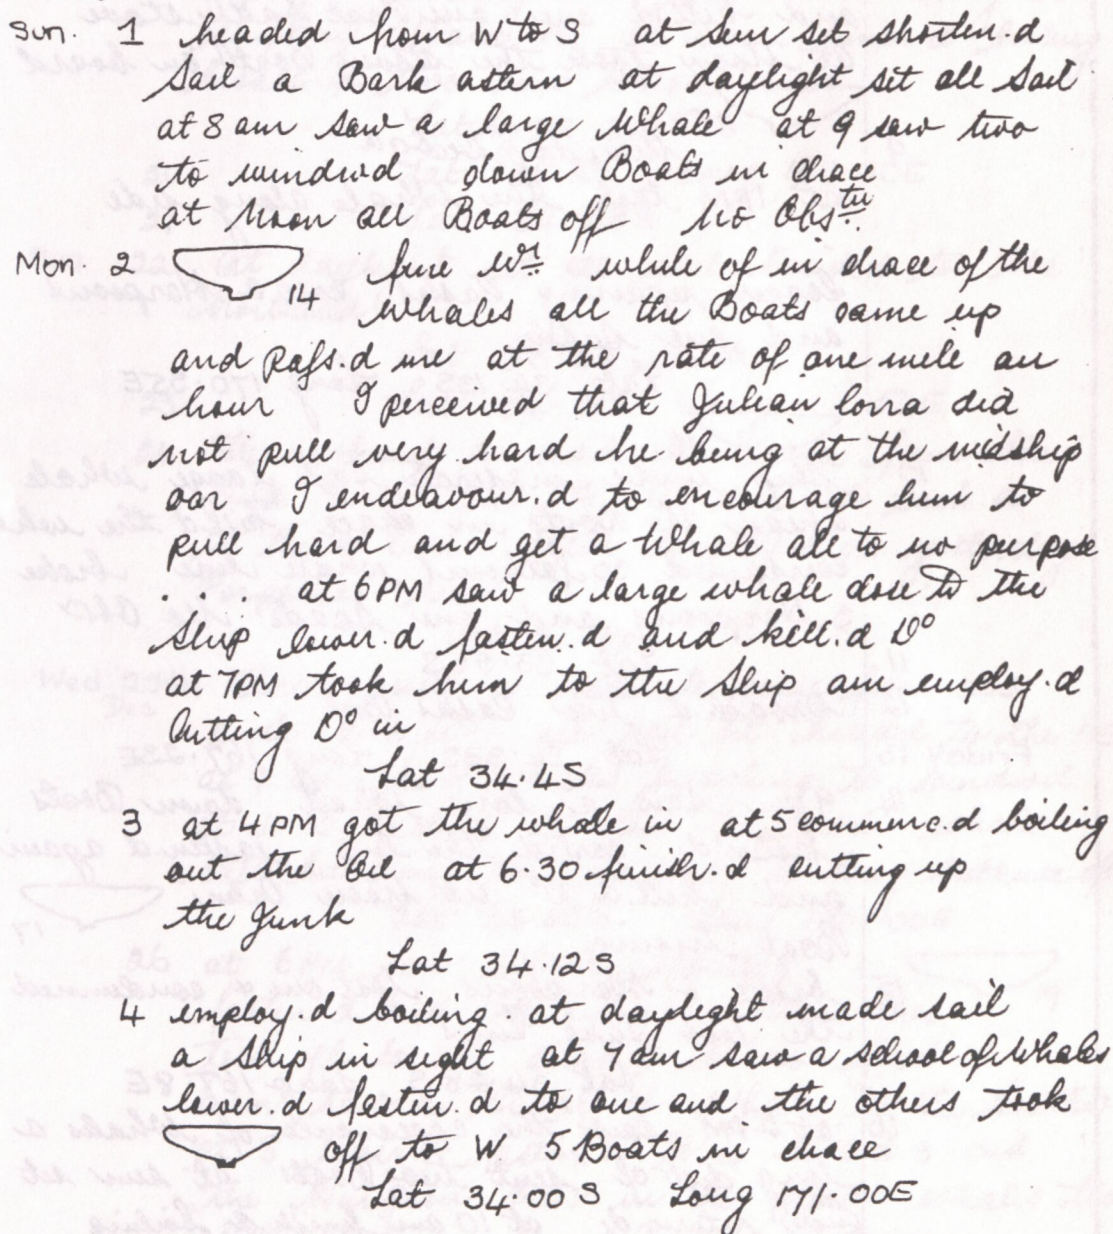 Sun. 1 headed from W to S at sun set shorten.d
Sail a Bark astern at daylight set all sail
at 8 am saw a large Whale at 9 saw two
to windw'd down Boats in chace
at Noon all Boats off No Obs.tn
Mon. 2 fine Wr. while of in chace of the
14 Whales all the Boats came up
and pass.d me at the rate of one mile an
hour I perceived that Julian lorra did
not pull very hard he being at the midship
oar I endeavour.d to encourage him to
pull hard and get a Whale all to no purpose
. . . . at 6PM saw a large whale close to the
Ship lower.d fasten.d and kill.d Do
at 7PM took him to the Ship am employ.d
Cutting Do in
Lat 34.4S
3 at 4PM got the whale in at 5 commenc.d boiling
out the Oil at 6.30 finish.d cutting up
the Junk
Lat 34.12S
4 employ.d boiling. at daylight made sail
a Ship in sight at 7 am saw a school of Whales
lower.d fasten.d to one and the others took
off to W. 5 Boats in chace
Lat 34.00S Long 171.00E